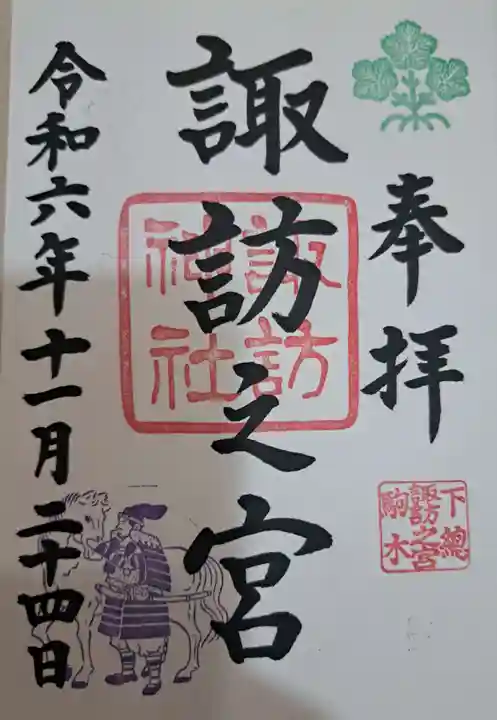 奉拝
下総
諏訪之宮
駒木
諏訪之宮
諏訪
神社
令和六年十一月二十四日